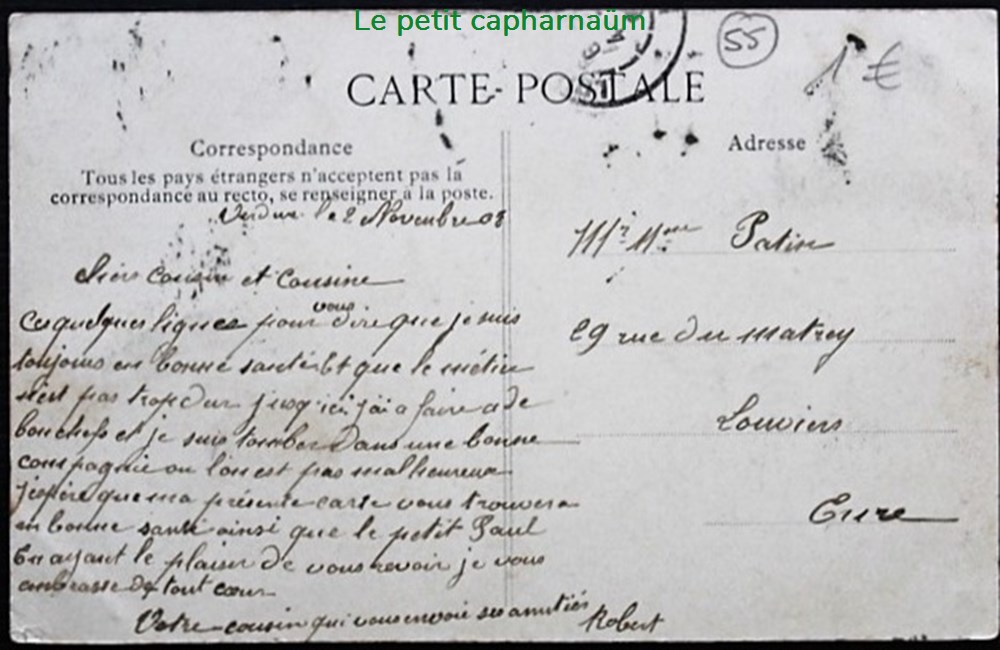 Le petit capharnaüm
55
1 €
CARTE POSTALE
Correspondance
Tous les pays étrangers n'acceptent pas la
correspondance au recto, se renseigner à la poste.
Verdun le 2 Novembre 08
Chers cousin et cousine
Ces quelques lignes pour vous dire que je suis
toujours en bonne santé Et que le métier
n'est pas trop dur jusq'ici j'ai a faire a de
bon chefs et je suis tomber dans une bonne
compagnie ou l'on est pas malheureux
j'espère que ma présente carte vous trouvera
en bonne santé ainsi que le petit Paul
En ayant le plaisir de vous revoir je vous
embrasse de tout cœur
Votre cousin qui vous envoie ses amitiés
Robert
Adresse
Mr Mme Patin
29 rue du matrey
Louviers
Eure